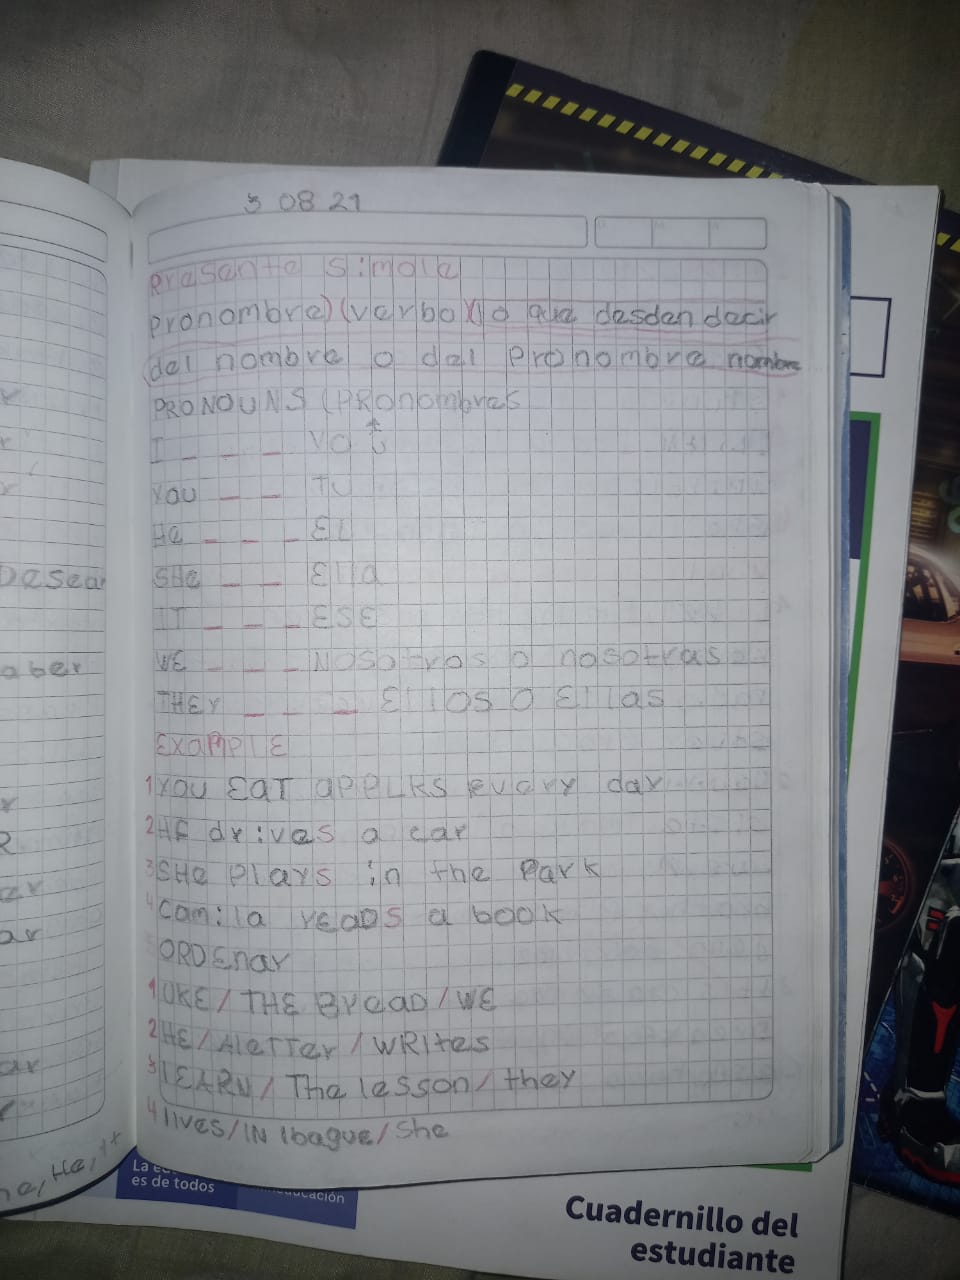 3 08 21
Presente simple
pronombre) (verbo) (lo que desden decir
(del nombre o del pronombre nombre
PRONOUNS (PRonombres
I _ _ _ YO
YOU _ _ TU
He _ _ _ EL
SHe _ _ Ella
IT _ _ _ ESE
WE _ _ _ NOSotros o nosotras
THEY _ _ _ Ellos o Ellas
EXAMPLE
1 YOU EAT appLks every day
2 HE drives a car
3 SHe Plays in the Park
4 Camila REaDS a book
ORDEnar
1 UKE / THE Bread / WE
2 HE / A letter / WRites
3 LEARN / The lesson / they
4 lives / IN Ibague / She
Desear
aber
ar
er
ar
ar
he, He, it
La
es de todos
educación
Cuadernillo del
estudiante